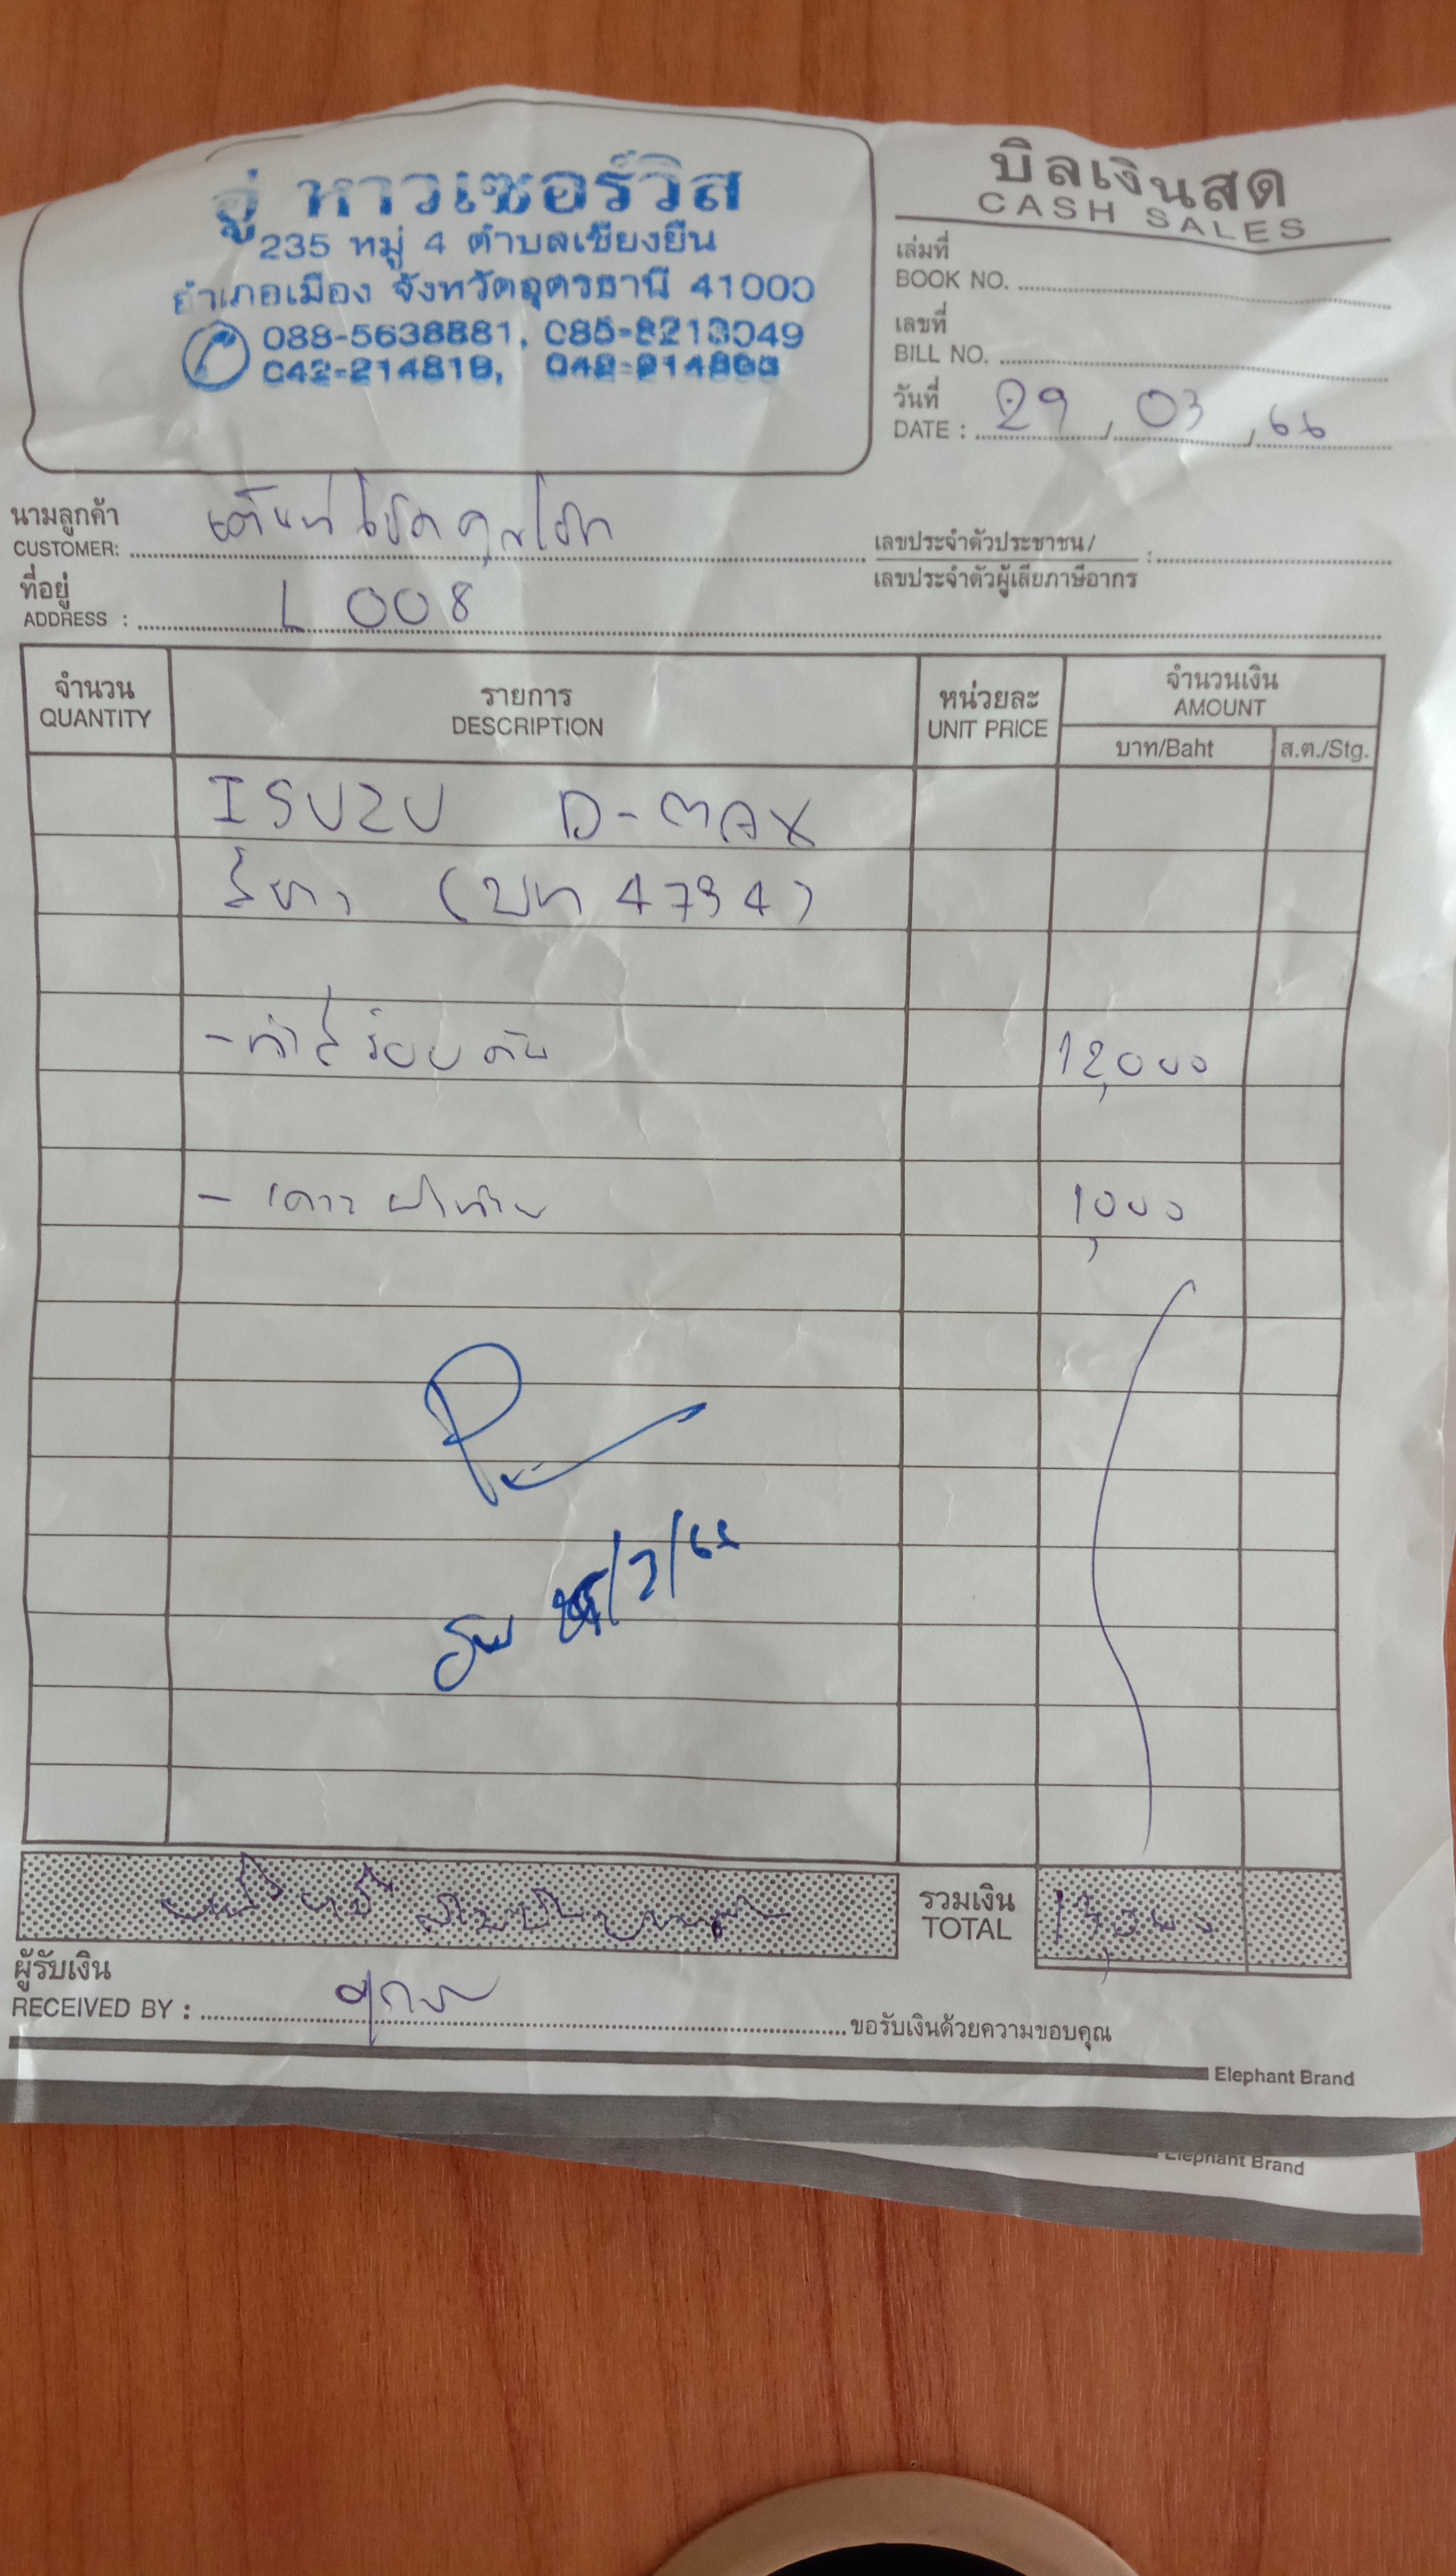 อู่ หาวเซอร์วิส
235 หมู่ 4 ตำบลเชียงยืน
อำเภอเมือง จังหวัดอุดรธานี 41000
088-5638881, 085-8213049
042-214819,
บิลเงินสด
CASH SALES
เล่มที่
BOOK NO.
เลขที่
BILL NO.
วันที่
DATE : 29 / 03 / 66
นามลูกค้า
CUSTOMER: เต็นท์โชคคูณโชค
เลขประจำตัวประชาชน/
เลขประจำตัวผู้เสียภาษีอากร :
ที่อยู่
ADDRESS : L 008
จำนวน QUANTITY รายการ DESCRIPTION หน่วยละ UNIT PRICE จำนวนเงิน AMOUNT
บาท/Baht ส.ต./Stg.
ISUZU D-MAX
สีขาว (บท 4794)
- ทำสีรอบคัน 12,000
- เคาะฝาท้าย 1,000
รวมเงิน
TOTAL 13,000
ผู้รับเงิน
RECEIVED BY :
ขอรับเงินด้วยความขอบคุณ
Elephant Brand
Elephant Brand